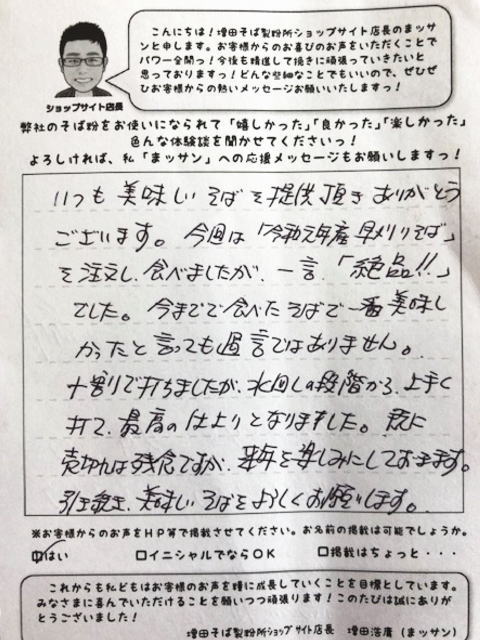 こんにちは！増田そば製粉所ショップサイト店長のまッサ
ンと申します。お客様からのお喜びのお声をいただくことで
パワー全開っ！今後も精進して挽きに頑張っていきたいと
思っておりますっ！どんな些細なことでもいいので、ぜひぜ
ひお客様からの熱いメッセージお願いいたしますっ！
ショップサイト店長
弊社のそば粉をお使いになられて「嬉しかった」「良かった」「楽しかった」
色んな体験談を聞かせてくださいっ！
よろしければ、私「まッサン」への応援メッセージもお願いしますっ！
いつも美味しいそばを提供頂きありがとう
ございます。今回は「令和元年産早刈りそば」
を注文し、食べましたが、一言、「絶品!!」
でした。今までで食べたそばで一番美味し
かったと言っても過言ではありません。
十割で打ちましたが、水回しの段階から、上手く
打て、最高の仕上りとなりました。既に
売切れは残念ですが、来年を楽しみにしております。
引き続き、美味しいそばをよろしくお願いします。
※お客様からのお声をHP等で掲載させてください。お名前の掲載は可能でしょうか。
☑はい □イニシャルでならOK □掲載はちょっと・・・
これからも私どもはお客様のお声を糧に成長していくことを目標としています。
みなさまに喜んでいただけることを願いつつ頑張ります！このたびは誠にありが
とうございました！
増田そば製粉所ショップサイト店長 増田浩庸（まッサン）